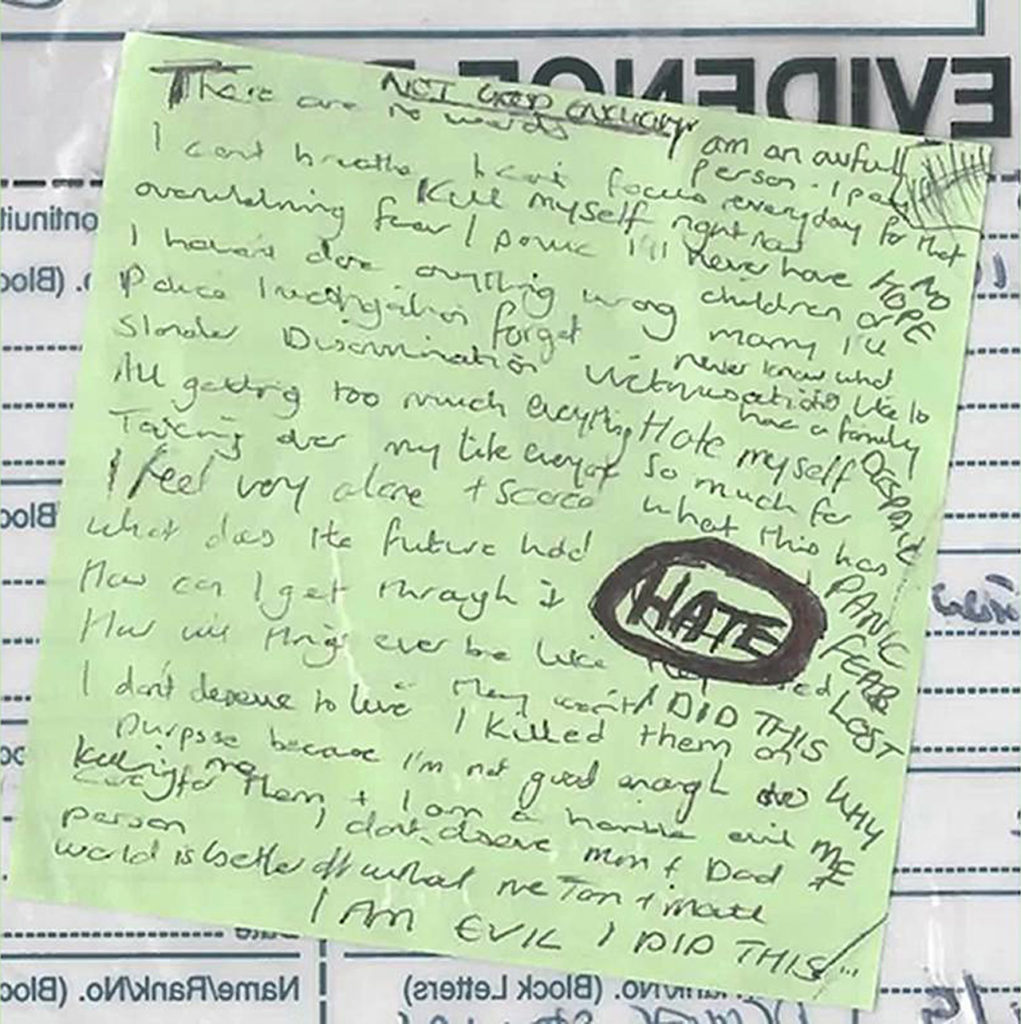 There are no words
NOT GOOD ENOUGH
I cant breathe I cant focus
overwhelming fear / panic
Kill myself right now
I haven't done anything wrong
Police Investigation forget
Slander Discrimination Victimisation
All getting too much everything
Taking over my life everyone
I feel very alone + scared
what does the future hold
How can I get through it
How will things ever be like
I don't deserve to live
I killed them on
purpose because I'm not good enough to
care for them + I am a horrible evil
person
I don't deserve Mum + Dad
world is better off without me
I AM EVIL I DID THIS
am an awful
person - I pay
everyday for that
I'll never have
children or
marry I'll
never know what
like to
have a family
Hate myself
so much for
what this has
HATE
I DID THIS
killing me
NO
HOPE
DESPAIR
PANIC
FEAR
LOST
WHY
ME
EVIDENCE
(Block
Name/Rank/No. (Block Letters)
Date